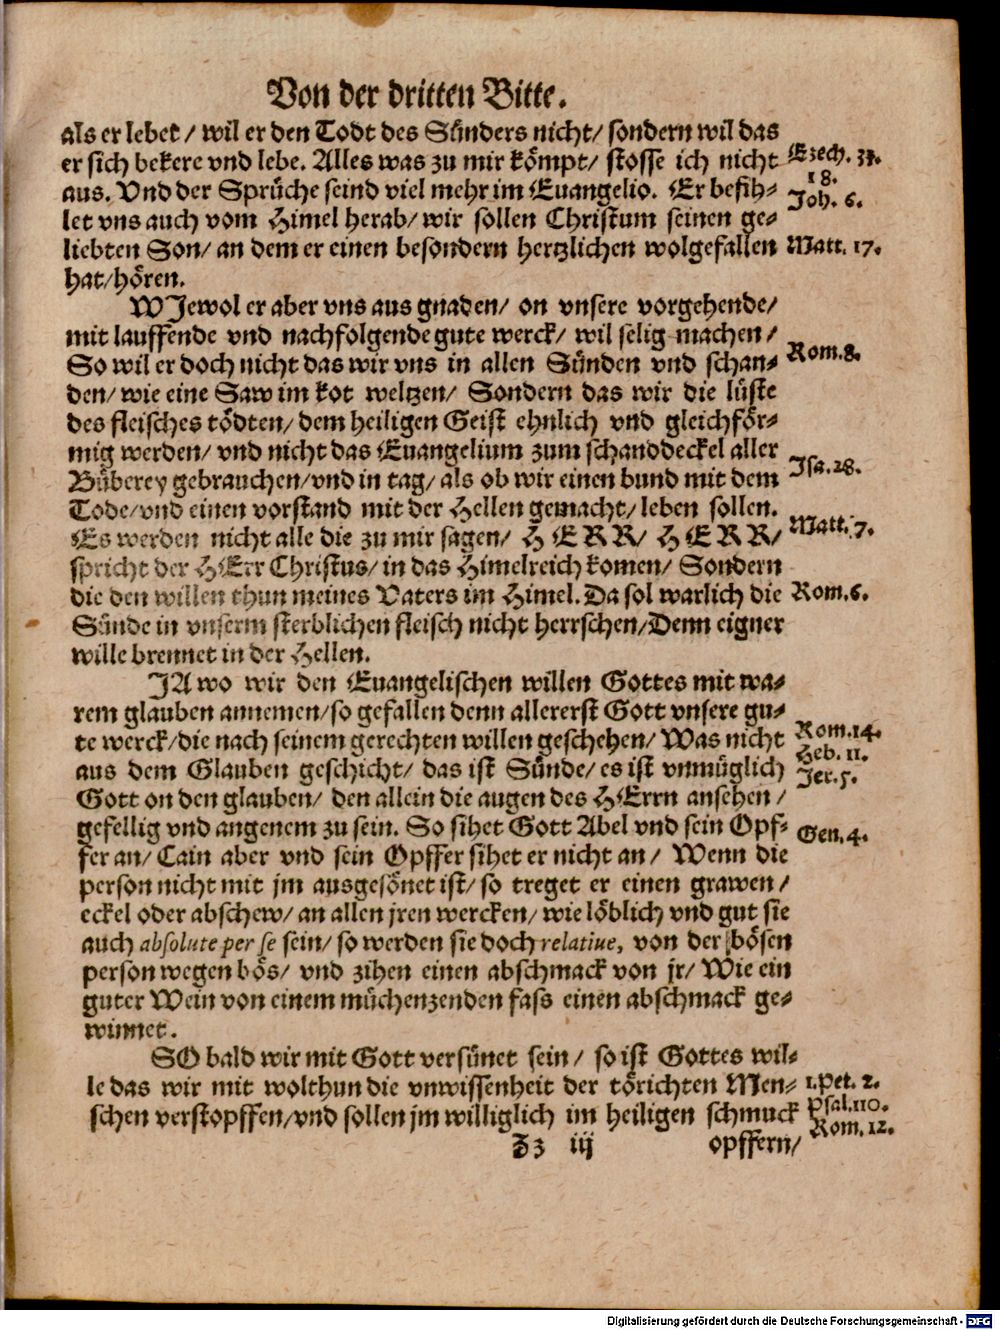 Von der dritten Bitte.
als er lebet / wil er den Todt des Sünders nicht / sondern wil das
er sich bekere vnd lebe. Alles was zu mir kömpt / stosse ich nicht
Ezech. 33.
18.
aus. Vnd der Sprüche seind viel mehr im Euangelio. Er befih-
Joh. 6.
let vns auch vom Himel herab / wir sollen Christum seinen ge-
liebten Son / an dem er einen besondern hertzlichen wolgefallen
Matt. 17.
hat / hören.
WJewol er aber vns aus gnaden / on vnsere vorgehende /
mit lauffende vnd nachfolgende gute werck / wil selig machen /
So wil er doch nicht das wir vns in allen Sünden vnd schan-
Rom. 8.
den / wie eine Saw im kot weltzen / Sondern das wir die lüste
des fleisches tödten / dem heiligen Geist ehnlich vnd gleichför-
mig werden / vnd nicht das Euangelium zum schanddeckel aller
Büberey gebrauchen / vnd in tag / als ob wir einen bund mit dem
Jsa. 28.
Tode / vnd einen vorstand mit der Hellen gemacht / leben sollen.
Es werden nicht alle die zu mir sagen / HERR / HERR /
Matt. 7.
spricht der HErr Christus / in das Himelreich komen / Sondern
die den willen thun meines Vaters im Himel. Da sol warlich die
Rom. 6.
Sünde in vnserm sterblichen fleisch nicht herrschen / Denn eigner
wille brennet in der Hellen.
JA wo wir den Euangelischen willen Gottes mit wa-
rem glauben annemen / so gefallen denn allererst Gott vnsere gu-
te werck / die nach seinem gerechten willen geschehen / Was nicht
Rom. 14.
Heb. 11.
aus dem Glauben geschicht / das ist Sünde / es ist vnmüglich
Jer. 5.
Gott on den glauben / den allein die augen des HErrn ansehen /
gefellig vnd angenem zu sein. So sihet Gott Abel vnd sein Opf-
Gen. 4.
fer an / Cain aber vnd sein Opffer sihet er nicht an / Wenn die
person nicht mit jm ausgesönet ist / so treget er einen grawen /
eckel oder abschew / an allen jren wercken / wie löblich vnd gut sie
auch absolute per se sein / so werden sie doch relatiue, von der bösen
person wegen bös / vnd zihen einen abschmack von jr / Wie ein
guter Wein von einem müchenzenden fass einen abschmack ge-
winnet.
SO bald wir mit Gott versünet sein / so ist Gottes wil-
le das wir mit wolthun die vnwissenheit der törichten Men-
1. Pet. 2.
schen verstopffen / vnd sollen jm williglich im heiligen schmuck
Psal. 110.
Rom. 12.
Zz iij
opffern /
Digitalisierung gefördert durch die Deutsche Forschungsgemeinschaft - DFG